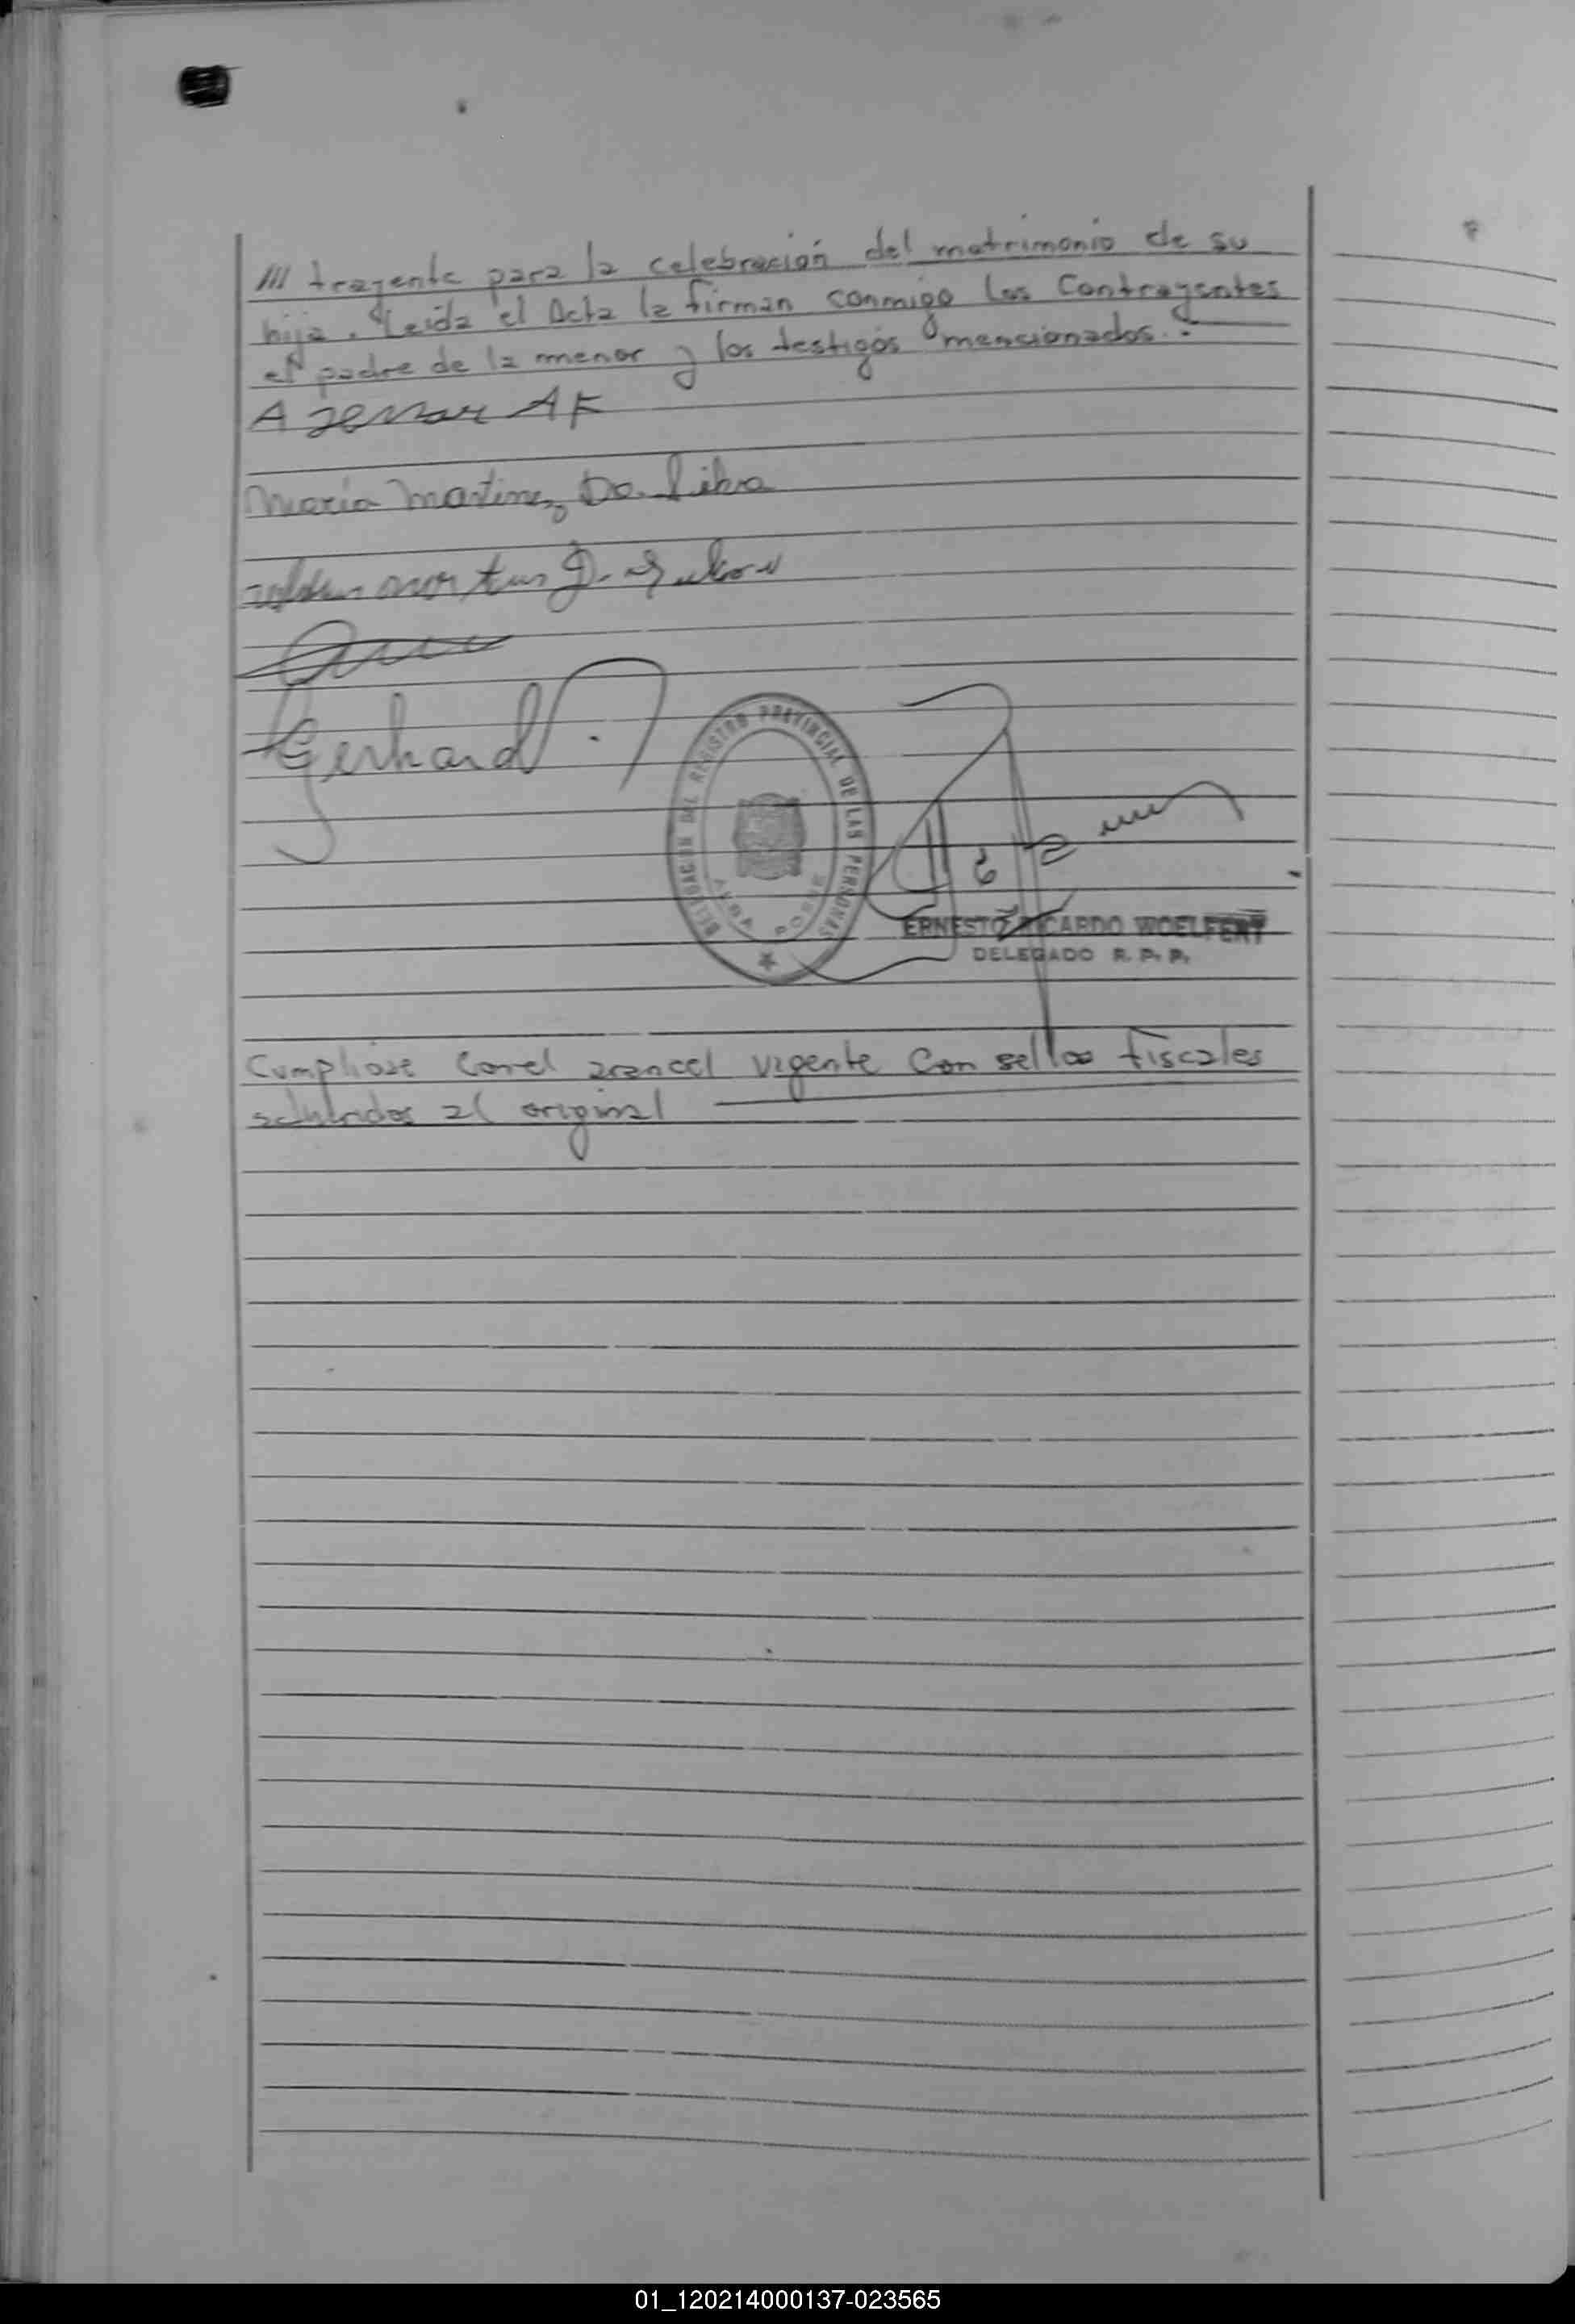 /// trayente para la celebración del matrimonio de su
hija. Leida el Acta la firman conmigo los Contrayentes
el padre de la menor y los testigos mencionados.-
A
María Martinez Da Silva
Gerhard
DELEGACION DEL REGISTRO PROVINCIAL DE LAS PERSONAS
POSSE
ERNESTO RICARDO WOELFERT
DELEGADO R. P. P.
Cumpliose con el arancel vigente con sellos fiscales
adheridos al original
01_120214000137-023565